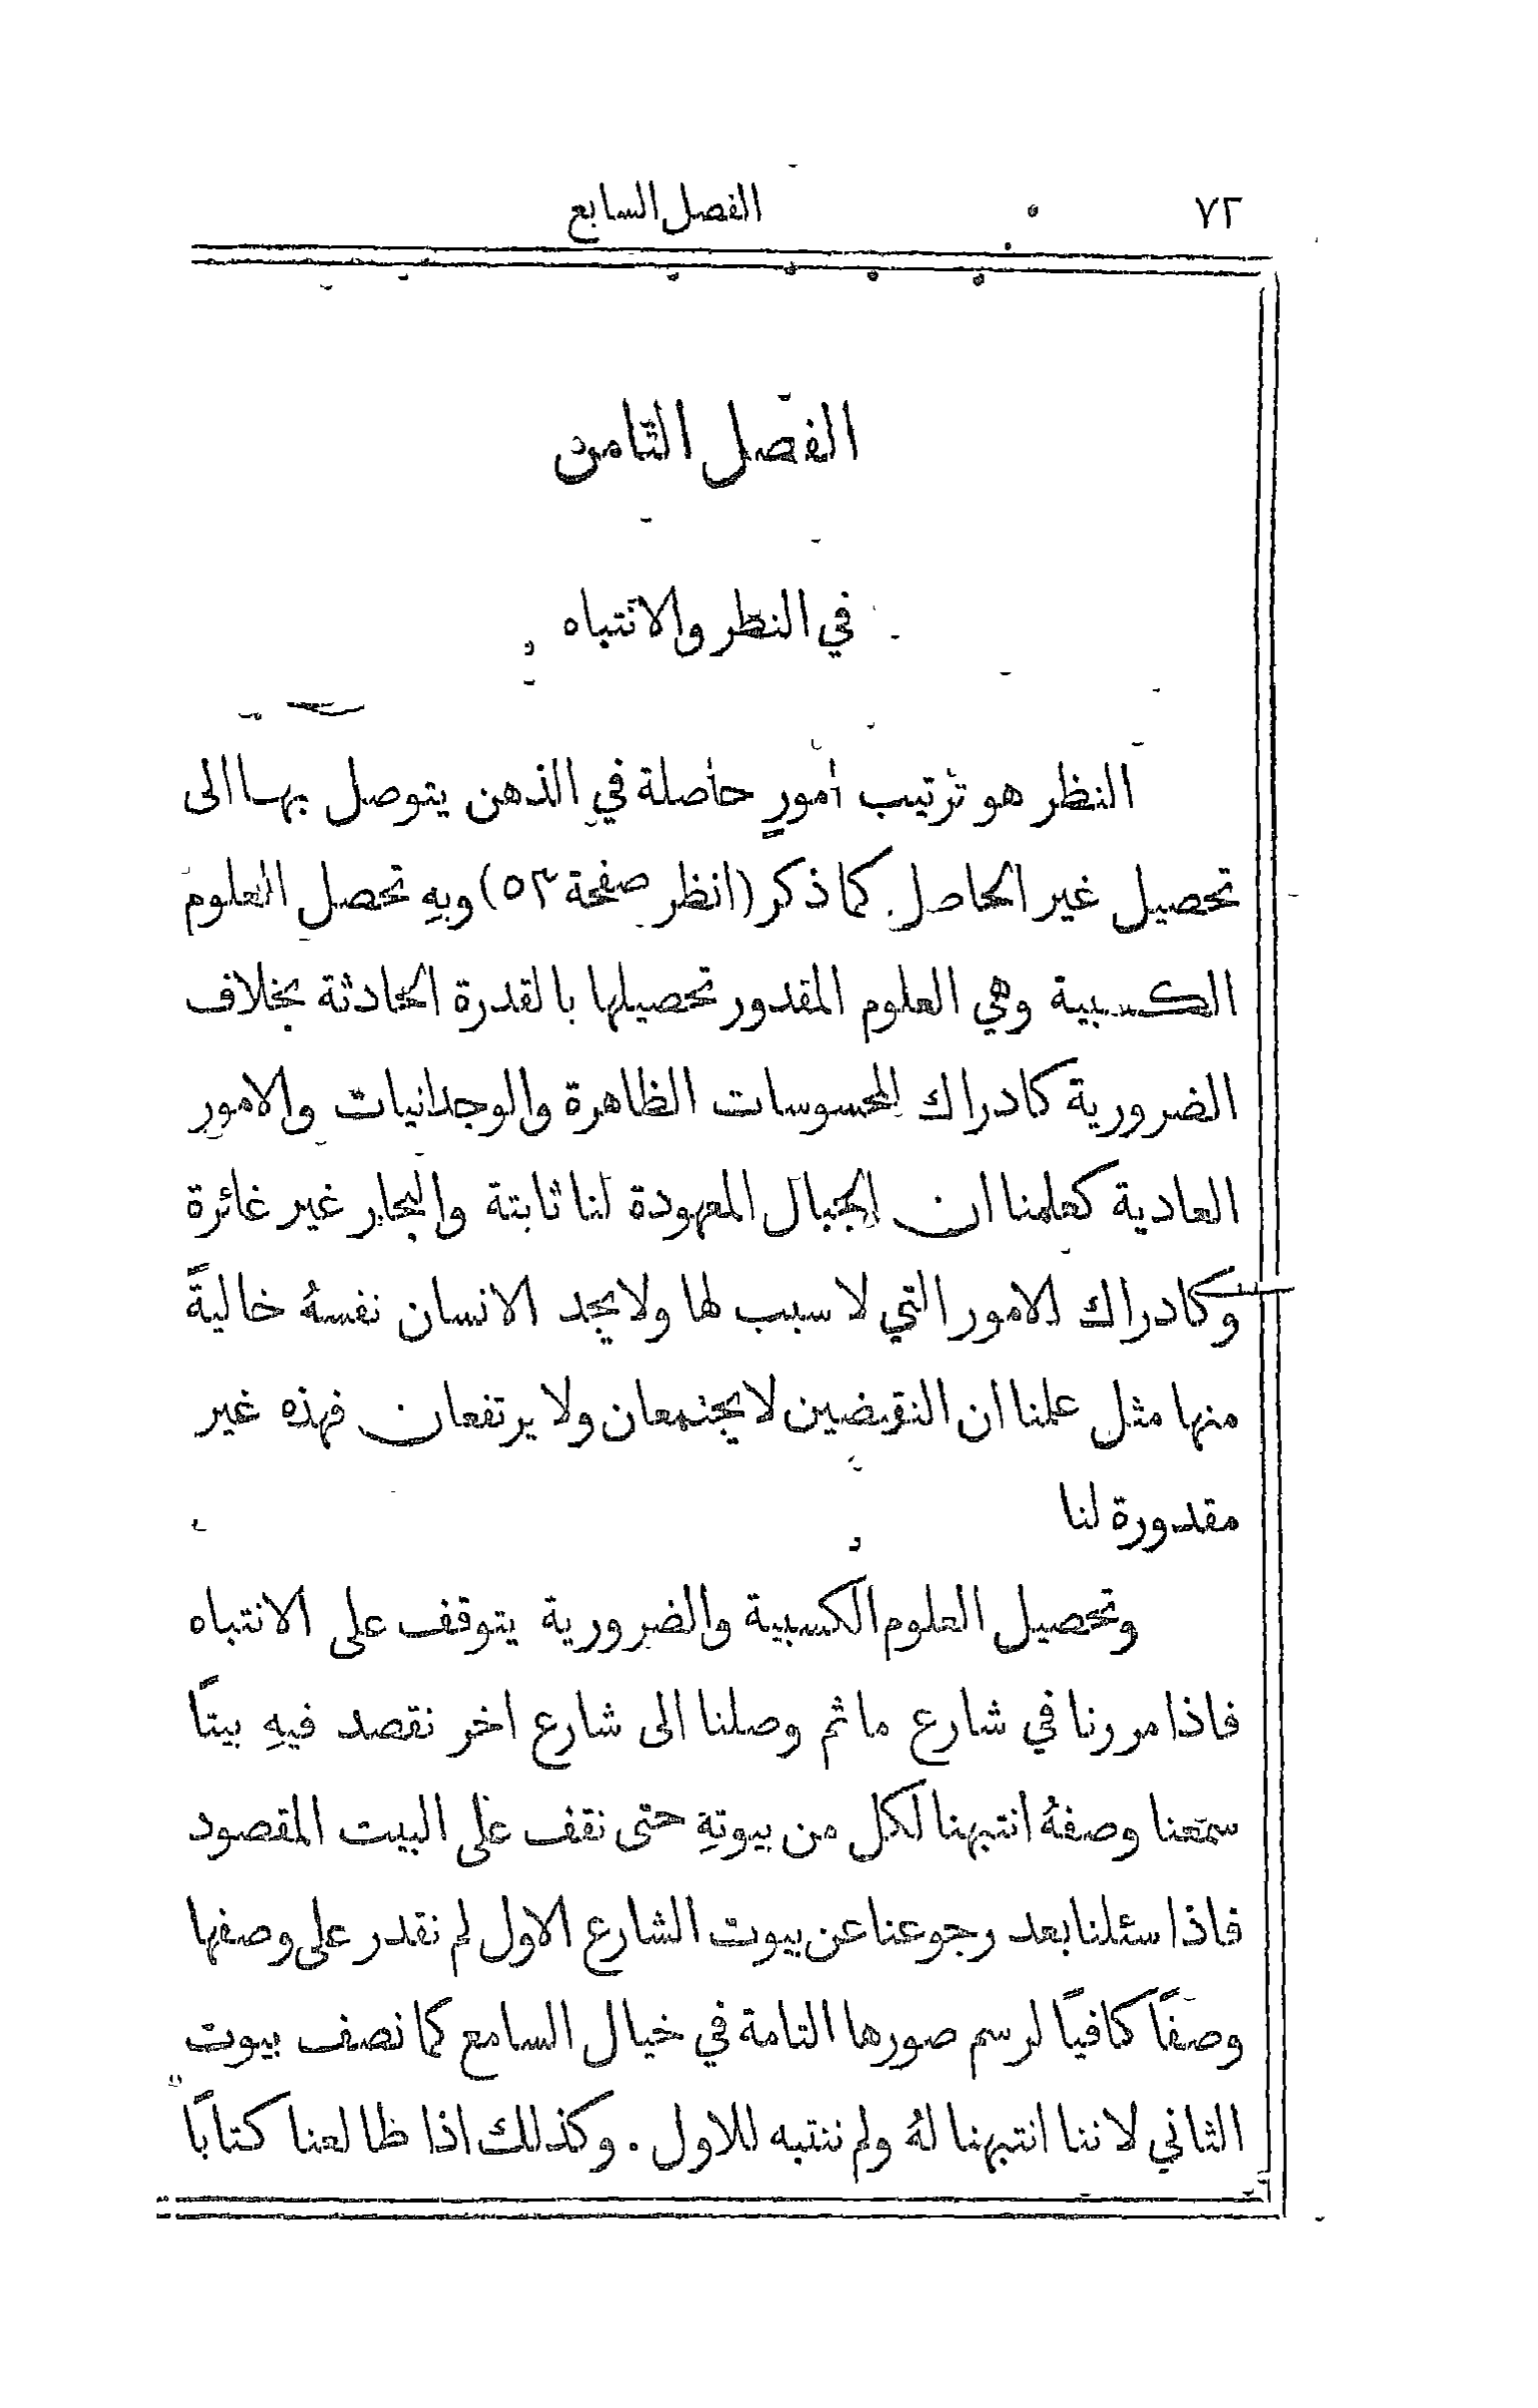 ٧٢ الفصل السابع
الفصل الثامن
في النظر والانتباه
النظر هو ترتيب أمورٍ حاصلة في الذهن يتوصل بها الى
تحصيل غير الحاصل كما ذكر (انظر صفحة ٥٣) وبهِ تحصل العلوم
الكسبية وهي العلوم المقدور تحصيلها بالقدرة الحادثة بخلاف
الضرورية كادراك المحسوسات الظاهرة والوجدانيات والامور
العادية كعلمنا ان الجبال المعهودة لنا ثابتة والبحار غير غائرة
وكادراك الامور التي لا سبب لها ولا يجد الانسان نفسهُ خاليةً
منها مثل علمنا ان النقيضين لا يجتمعان ولا يرتفعان فهذه غير
مقدورة لنا
وتحصيل العلوم الكسبية والضرورية يتوقف على الانتباه
فاذا مررنا في شارع ما ثم وصلنا الى شارع اخر نقصد فيهِ بيتًا
سمعنا وصفهُ انتبهنا لكل من بيوتهِ حتى نقف على البيت المقصود
فاذا سئلنا بعد رجوعنا عن بيوت الشارع الاول لم نقدر على وصفها
وصفًا كافيًا لرسم صورها التامة في خيال السامع كما نصف بيوت
الثاني لاننا انتبهنا لهُ ولم ننتبه للاول . وكذلك اذا طالعنا كتابًا